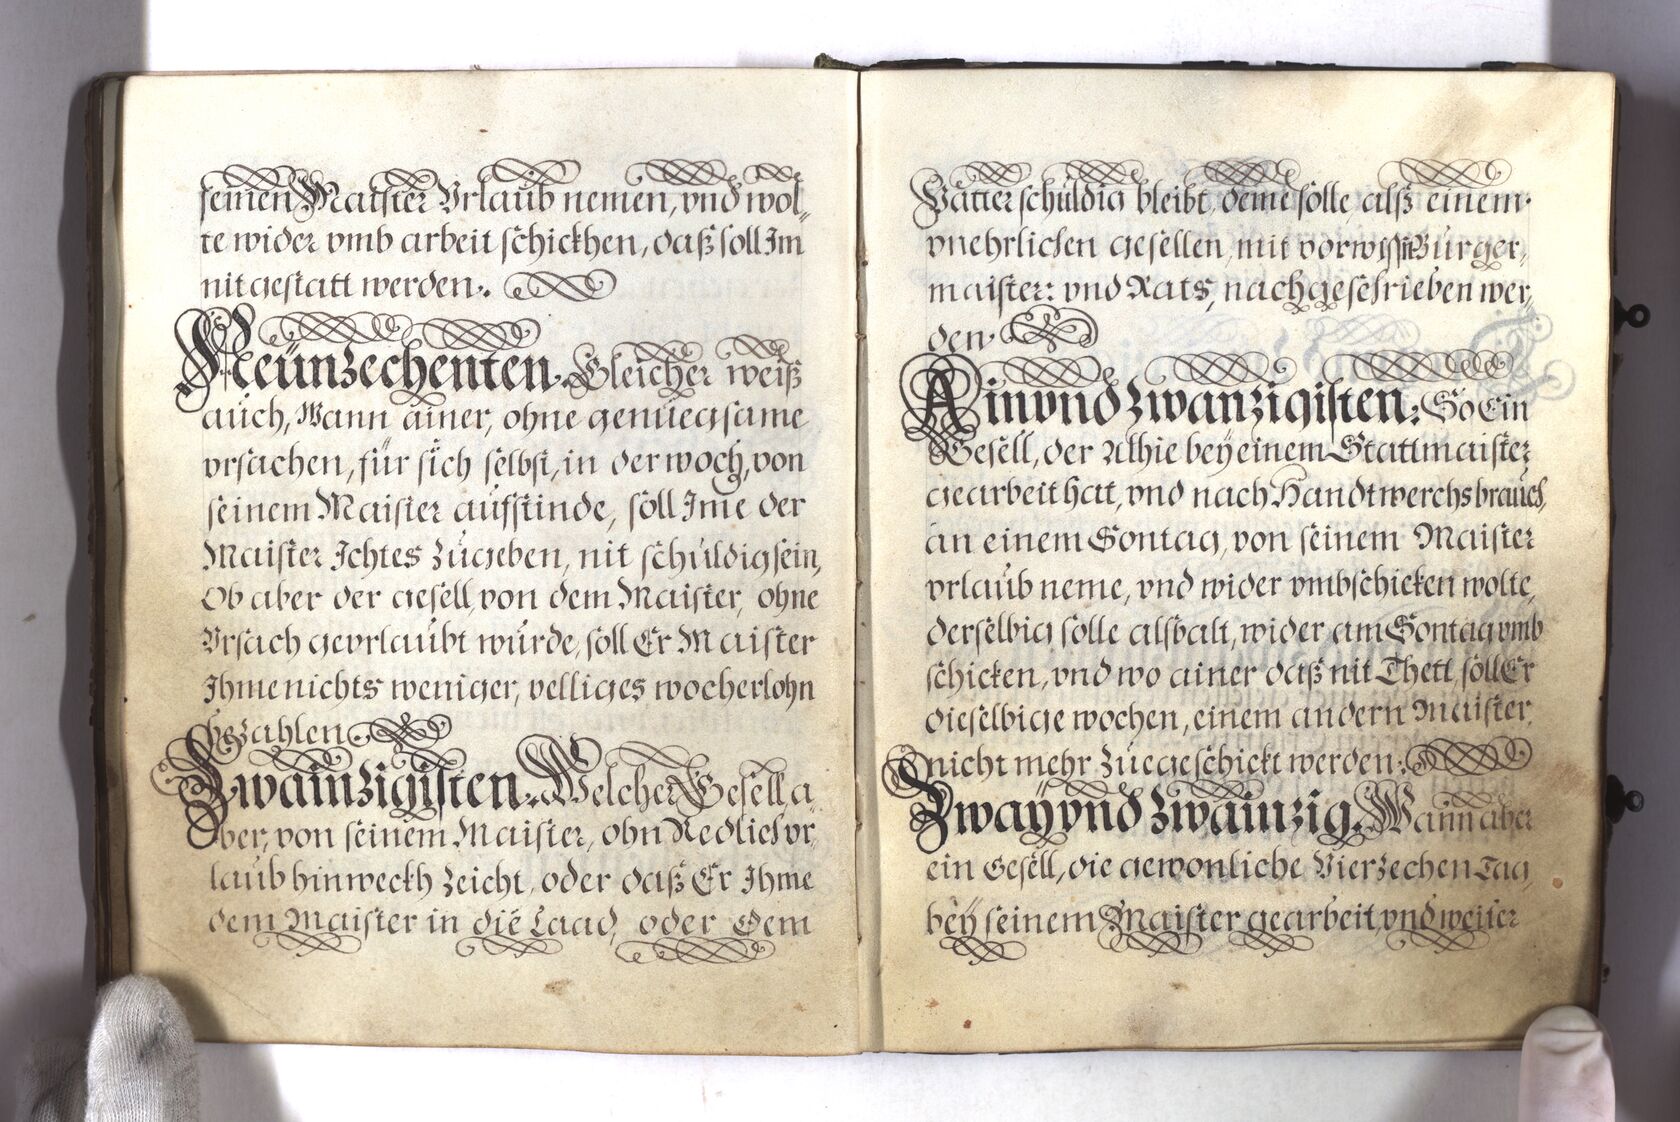 seinen Maister Vrlaub nemen, vnd wol„
te wider vmb arbeit schickhen, daß soll Im
nit gestatt werden.
Neünzechenten. Gleicher weiß
auch, Wann ainer, ohne genuegsame
vrsachen, für sich selbst, in der woch, von
seinem Maister aufstünde, soll Ime der
Maister Ichtes zugeben, nit schuldig sein,
Ob aber der gesell, von dem Maister, ohne
Vrsach gevrlaubt wurde, soll Er Maister
Ihme nichts weniger, velliges wocherlohn
bezahlen.
Zwainzigisten. Welcher Gesell a„
ber, von seinem Maister, ohn Redlich vr„
laub hinweckh zeicht, oder daß Er Ihme
dem Maister in die Laad, oder dem
Vatter schuldig bleibt, deme solle, alß einem
vnehrlichen gesellen, mit vorwissen Burger„
maister: vnd Rats, nachgeschrieben wer„
den.
Ainvnd zwanzigisten. So Ein
Gesell, der Alhie bey einem Stattmaister
gearbeit hat, vnd nach Handtwerchsbrauch,
an einem Sontag, von seinem Maister
vrlaub neme, vnd wider vmbschicken wolte,
derselbig solle alsbalt, wider am Sontag vmb
schicken, vnd wo ainer daß nit Thett, soll Er
dieselbige wochen, einem andern Maister
nicht mehr zuegeschickt werden.
Zwaÿ vnd zwainzig. Wann aber
ein Gesell, die gewonliche Vierzechen Tag,
beÿ seinem Maister gearbeit, vnd weiter